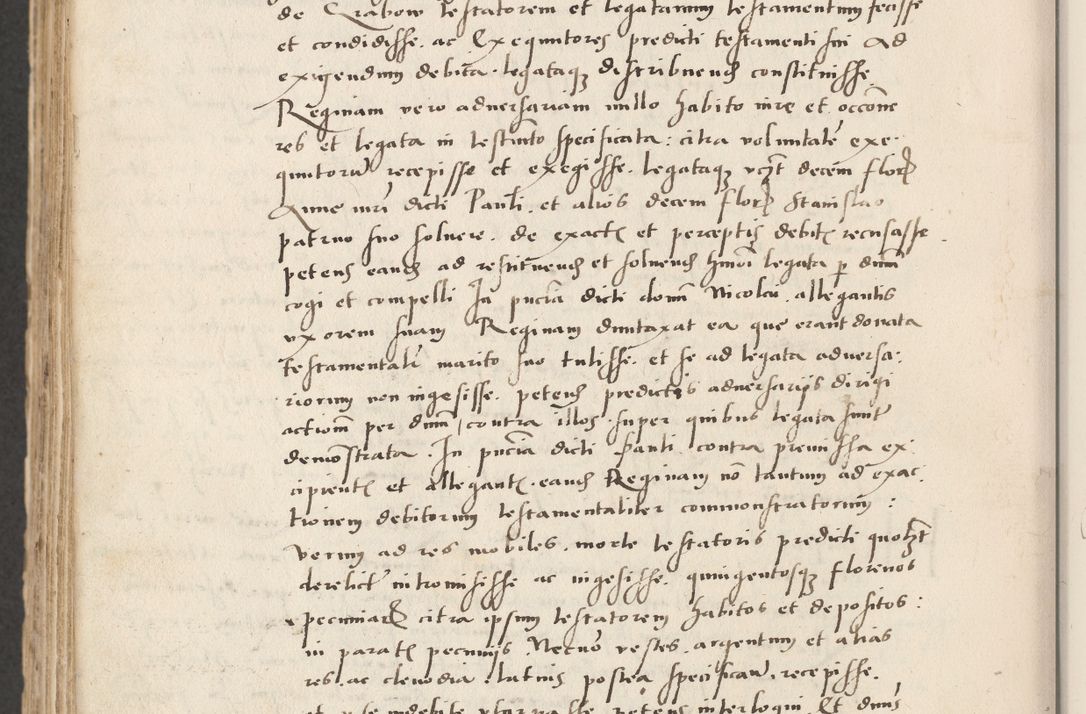 de Grabow testatorem et legatarium testamentum fecisse
et condidisse. ac Exequutores predicti testamenti sui Ad
exigendum debita. legataq distribuend constituisse
Reginam vero adversariam nullo habito iure et occone
res et legata in testmto specificata: citra voluntate exe-
quutoru recepisse et exegisse. legataq vcz decem flor
Anne dicti Pauli. et alios decem flor Stanislao
patruo suo soluere. de exact et perceptis debit recusasse.
petens eand ad restituend et soluend hmoi legata p dnm
cogi et compelli In pncia dicti domi Nicolai. allegantis
vxorem suam Reginam duntaxat ea que erant donata
testamentali marito suo tulisse. et se ad legata adversa-
riorum non ingesisse. petens predictis adversariis dirigi
actiom per dnm contra illos. super quibus legata sunt
demostrata. In pncia dicti Pauli contra premissa ex-
cipient et allegant. eand Reginam no tantum ad exac-
tionem debitorum testamentaliter commonstratorum:
verum ad res mobiles. morte testatoris predicti
derelict intromisisse ac ingesisse. quingentosq florenos
pecuniar citra ipsum testatorem habitos et depositos:
in parat pecuniis. Necno vestes. argentum et alias
res. ac clenodia. latius postea specificau. recepisse.
et indebite petens interloqui. Et dnus